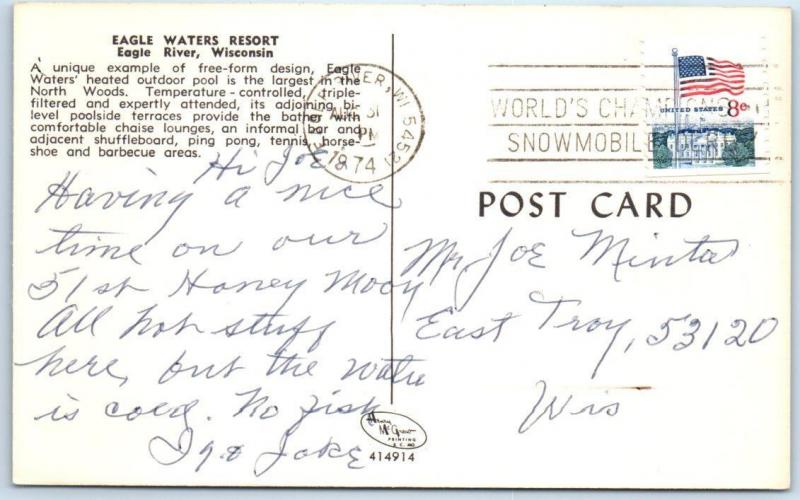 EAGLE WATERS RESORT
Eagle River, Wisconsin
A unique example of free-form design, Eagle
Waters' heated outdoor pool is the largest in the
North Woods. Temperature-controlled, triple-
filtered and expertly attended, its adjoining bi-
level poolside terraces provide the bather with
comfortable chaise lounges, an informal bar and
adjacent shuffleboard, ping pong, tennis, horse-
shoe and barbecue areas.
Hi Joe
Having a nice
time on our
51st Honey Moon
All hot stuff
here, but the water
is cold. No fish
Jake
RIVER, WI 54521
31
PM
1974
WORLD'S CHAMPIONSHIP
SNOWMOBILE DERBY
UNITED STATES 8c
POST CARD
Mr Joe Minta
East Troy, 53120
Wis
Henry
McGrew
PRINTING
K.C. MO
414914